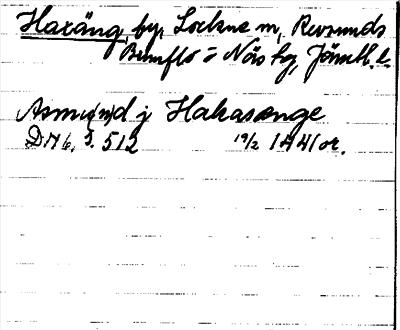 Haxäng, by, Lockne sn, Revsunds
Brunflo o Näs tg, Jämtl. l.
Asmund j Hakasænge
DN 16. I. 512 19/2 1441 or.